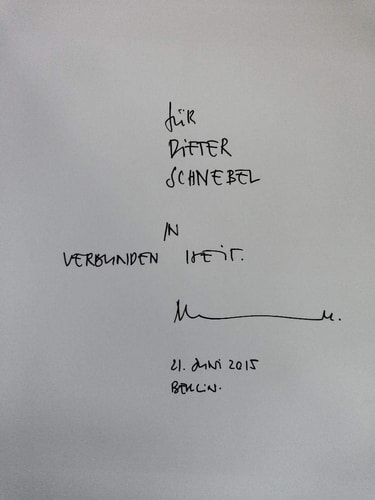 für
DIETER
SCHNEBEL
IN
VERBUNDEN HEIT.
21. Juni 2015
BERLIN.